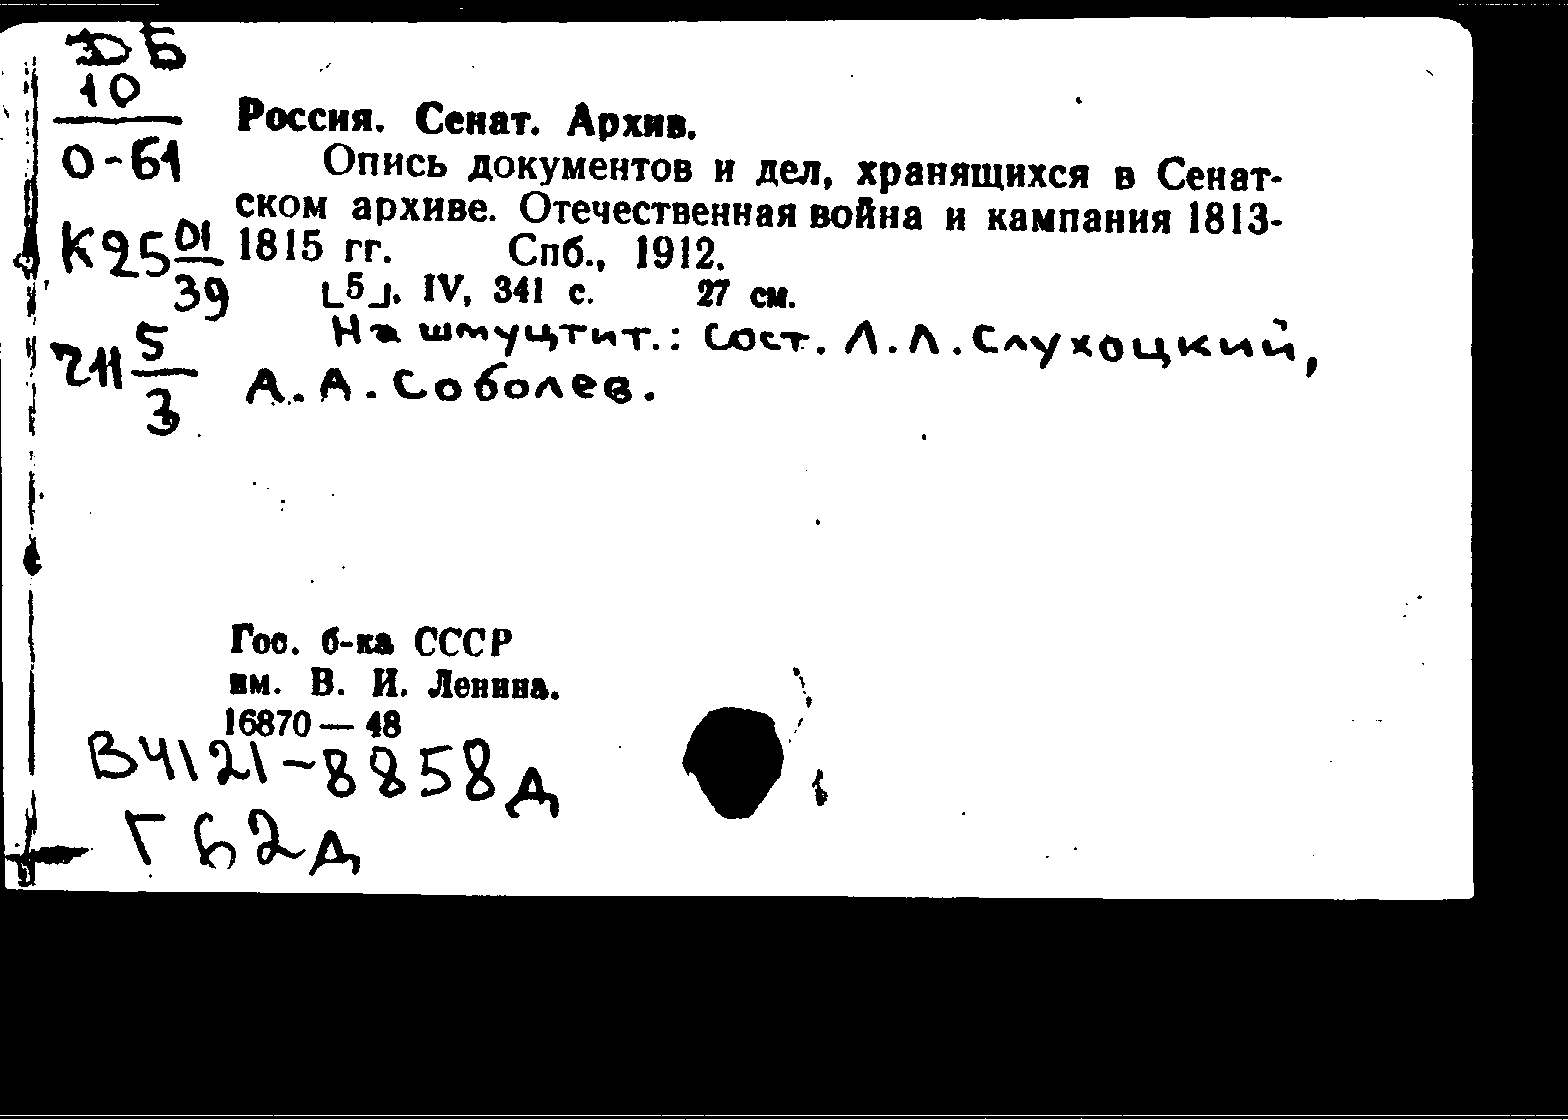 ДБ
10
О-61
К25 01
39
Z11 5
3
Россия. Сенат. Архив.
Опись документов и дел, хранящихся в Сенат-
ском архиве. Отечественная война и кампания 1813-
1815 гг. Спб., 1912.
[5]. IV, 341 с. 27 см.
На шмуцтит.: Сост. Л.Л.Слухоцкий,
А.А.Соболев.
Гос. б-ка СССР
им. В. И. Ленина.
16870 — 48
В4121-8858д
Г62д